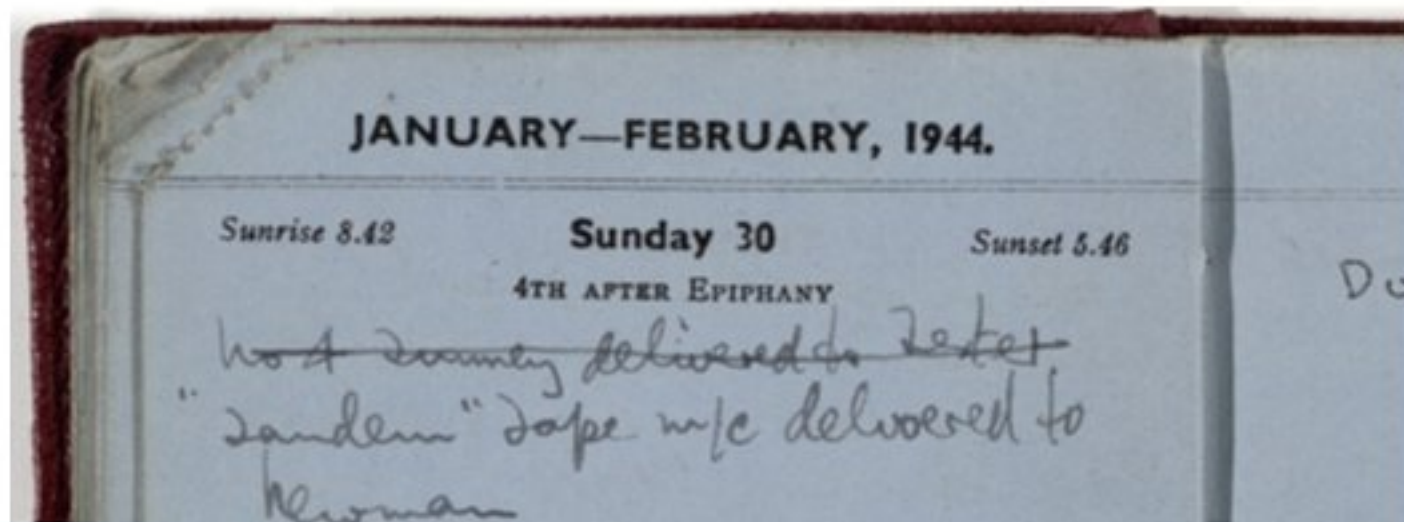 JANUARY—FEBRUARY, 1944.
Sunrise 8.42 Sunday 30 Sunset 5.46
4TH AFTER EPIPHANY
No 4 Tunney delivered to Tester
"Tandem" Tape m/c delivered to
Newman